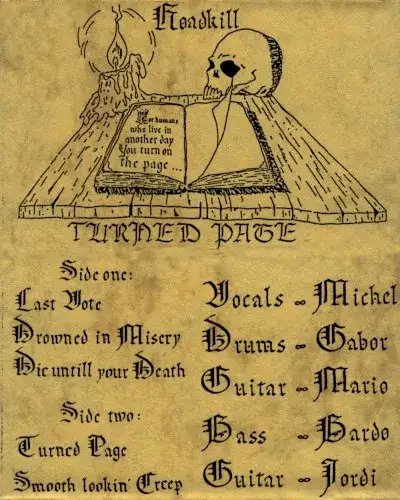 Roadkill
For humans
who live in
another day
You turn on
the page...
TURNED PAGE
Side one:
Last Vote
Drowned in Misery
Die untill your Death
Side two:
Turned Page
Smooth lookin' Creep
Vocals ∞ Michel
Drums ∞ Gabor
Guitar ∞ Mario
Bass ∞ Bardo
Guitar ∞ Jordi